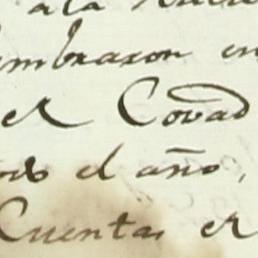 a la
mbraron en
el Covad
os el año,
Cuenta, el